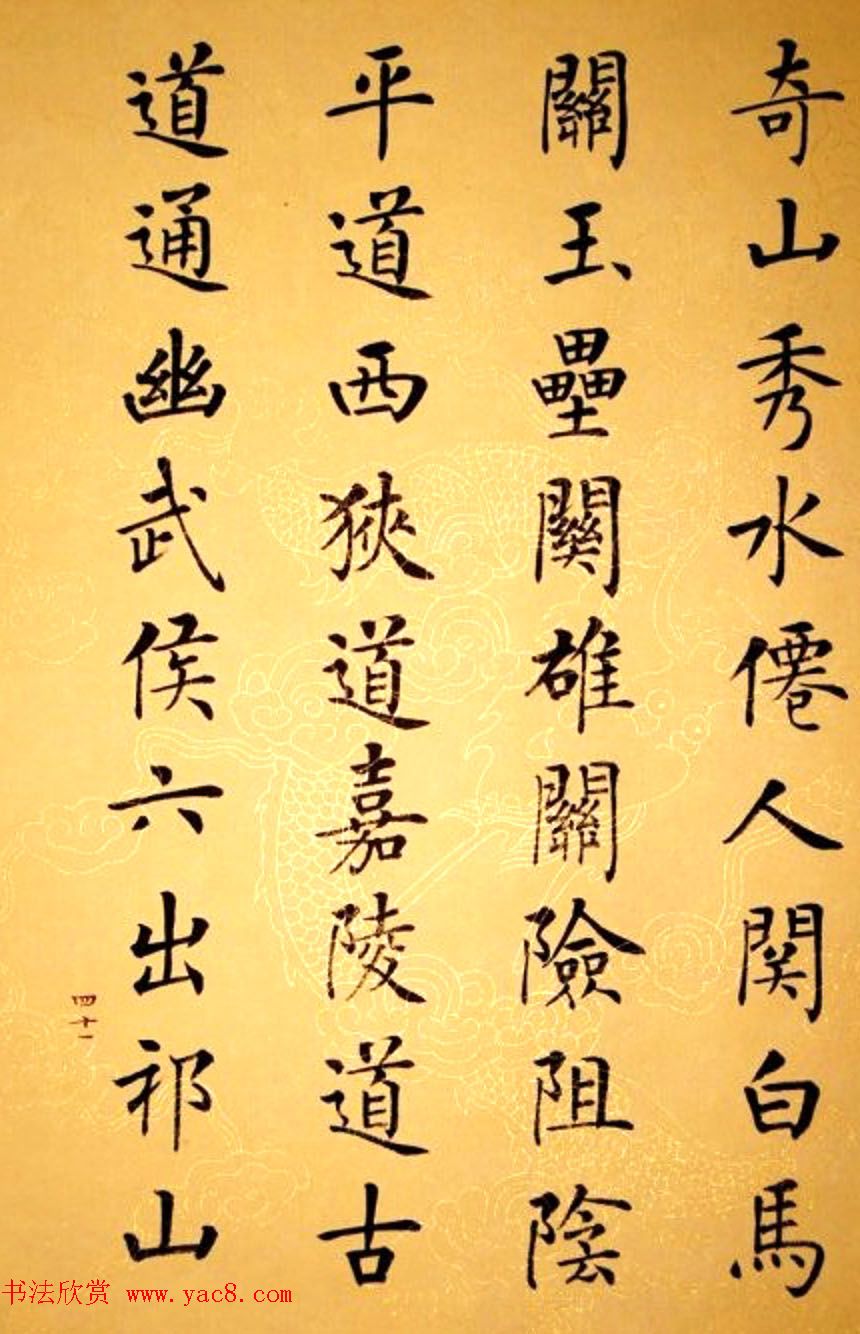 奇山秀水僊人関白馬
關玉壘關雄關險阻陰
平道西狹道嘉陵道古
道通幽武侯六出祁山
四十一
书法欣赏 www.yac8.com